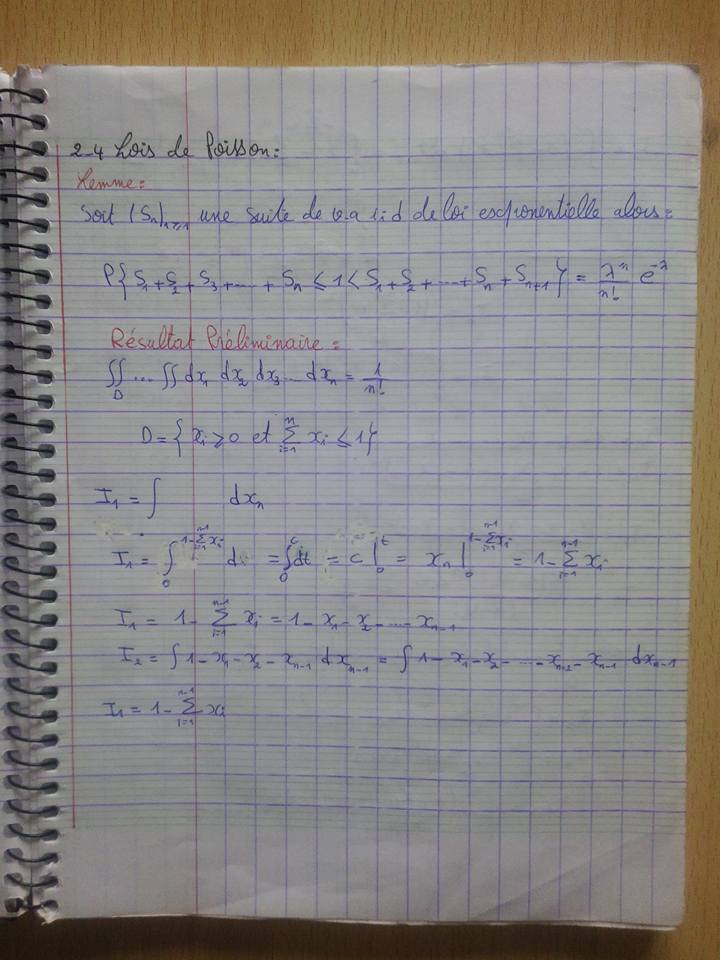 2-4 Lois de Poisson:
Lemme:
Soit (Sn)n≥1 une suite de v.a i.i.d de loi exponentielle alors:
P{S1+S2+S3+....+ Sn ≤ 1 < S1+S2+....+Sn+Sn+1} = λ^n/n! e^-λ
Résultat Préliminaire:
∬D ... ∬ dx1 dx2 dx3 ... dxn = 1/n!
D = { xi ≥ 0 et Σ_{i=1}^{n} xi ≤ 1}
I1 = ∫ dxn
I1 = ∫_0^{1-Σ_{i=1}^{n-1} xi} d = ∫_0^c dt = c |_0^t = xn |_0^{1-Σ_{i=1}^{n-1} xi} = 1-Σ_{i=1}^{n-1} xi
I1 = 1- Σ_{i=1}^{n-1} xi = 1-x1-x2-....-xn-1
I2 = ∫ 1-x1-x2-xn-1 dxn-1 = ∫ 1-x1-x2-....-xn-2-xn-1 dxn-1
I1 = 1- Σ_{i=1}^{n-1} xi